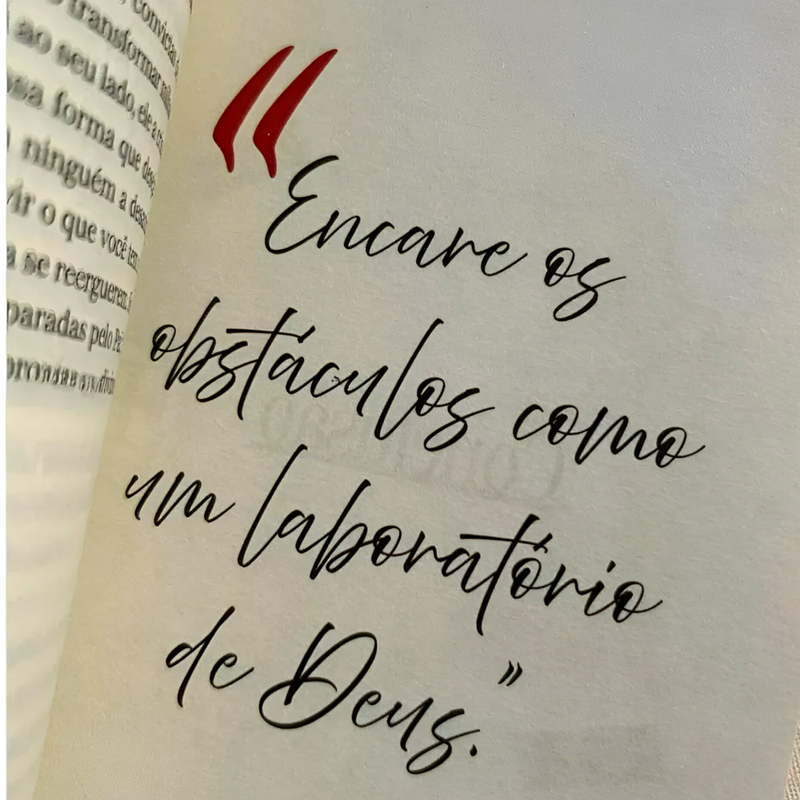 convictas
transformar
ao seu lado, ele a
forma que
ninguém a
o que você
se reerguerem
paradas pelo
“Encare os
obstáculos como
um laboratório
de Deus.”